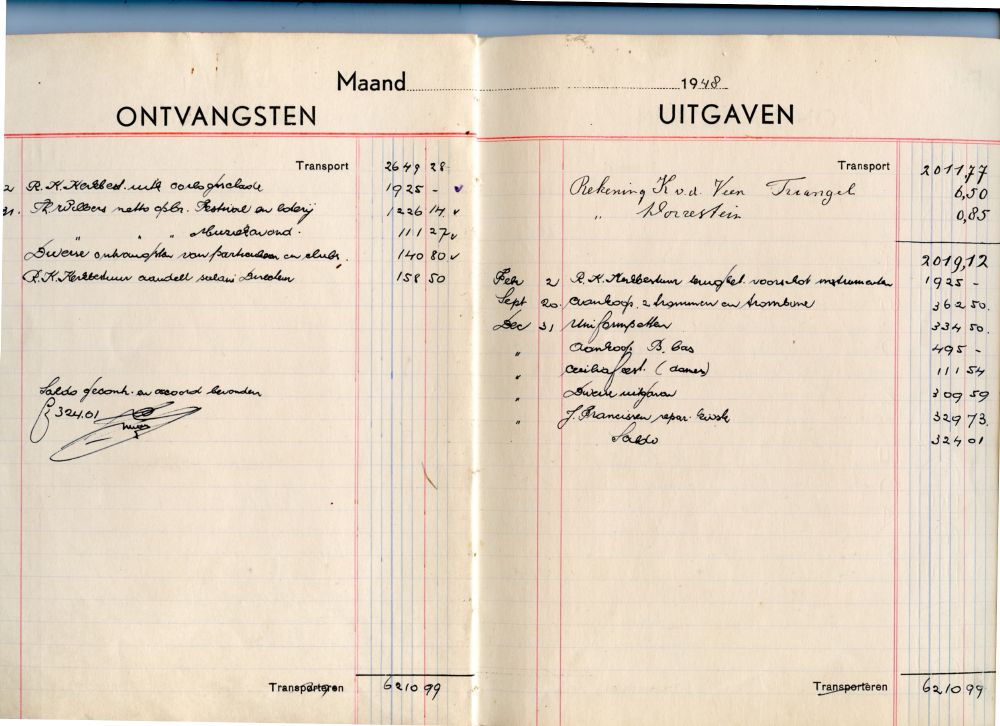 Maand 1948
ONTVANGSTEN
Transport 2649 28
2 R.K. Kerkbest. uitk oorlogsschade 1925 -
31. Th. Wilbers netto opbr. Festival en loterij 1226 14
" " " Muziekavond. 111 27
Diverse ontvangsten van particulieren en clubs. 140 80
R.K. Kerkbestuur aandeel salaris Directeur 158 50
Saldo gecontr. en accoord bevonden
324.01
Transporteren 6210 99
UITGAVEN
Transport 2011,77
Rekening K v.d. Veen Triangel 6,50
" 0,85
2019,12
Febr 2 R.K. Kerkbestuur terugbet. voorschot instrumenten 1925 -
Sept 20. Aankoop 2 trommen en trombone 362 50.
Dec 31 Uniformpetten 334 50.
" Aankoop B. bas 495 -
" Ceciliafeest. (dames) 111 54
" Diverse uitgaven 309 59
" J. Francissen repar. kiosk 329 73.
Saldo 324 01
Transporteren 6210 99